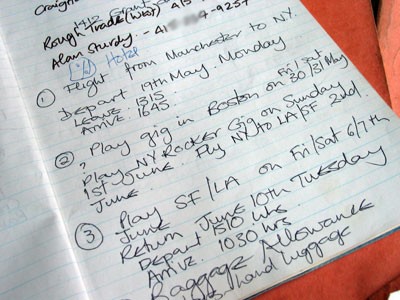 Craigri
1412 Grant
Rough Trade (W&S) 415
Alan Sturdy:- 41 7-9257
Hotel
① Flight from Manchester to NY.
Depart 19th May Monday
Leave 1315
Arrive 1645
② , Play gig in Boston on Fri/Sat 30/31 May
Play NY Rocker Gig on Sunday
1st June. Fly NY to LA/SF 2nd.
June.
③ Play SF/LA on Fri/Sat 6/7th
June
Return June 10th Tuesday
Depart 1510 hrs
Arrive 1030 hrs.
Baggage Allowance
hand luggage